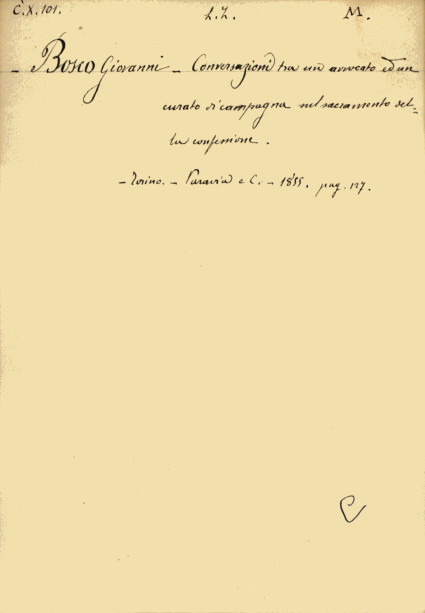 C.X.101. L.L. M.
- Bosco Giovanni - Conversazioni tra un avvocato ed un
curato di campagna sul sacramento del=
la confessione.
- Torino. - Paravia e C. - 1855. pag. 127.